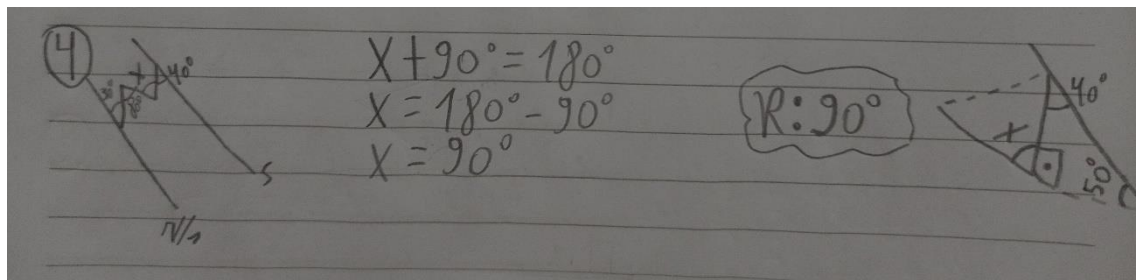 4
X
40°
S
X + 90° = 180°
X = 180° - 90°
X = 90°
R: 90°
40°
X
50°